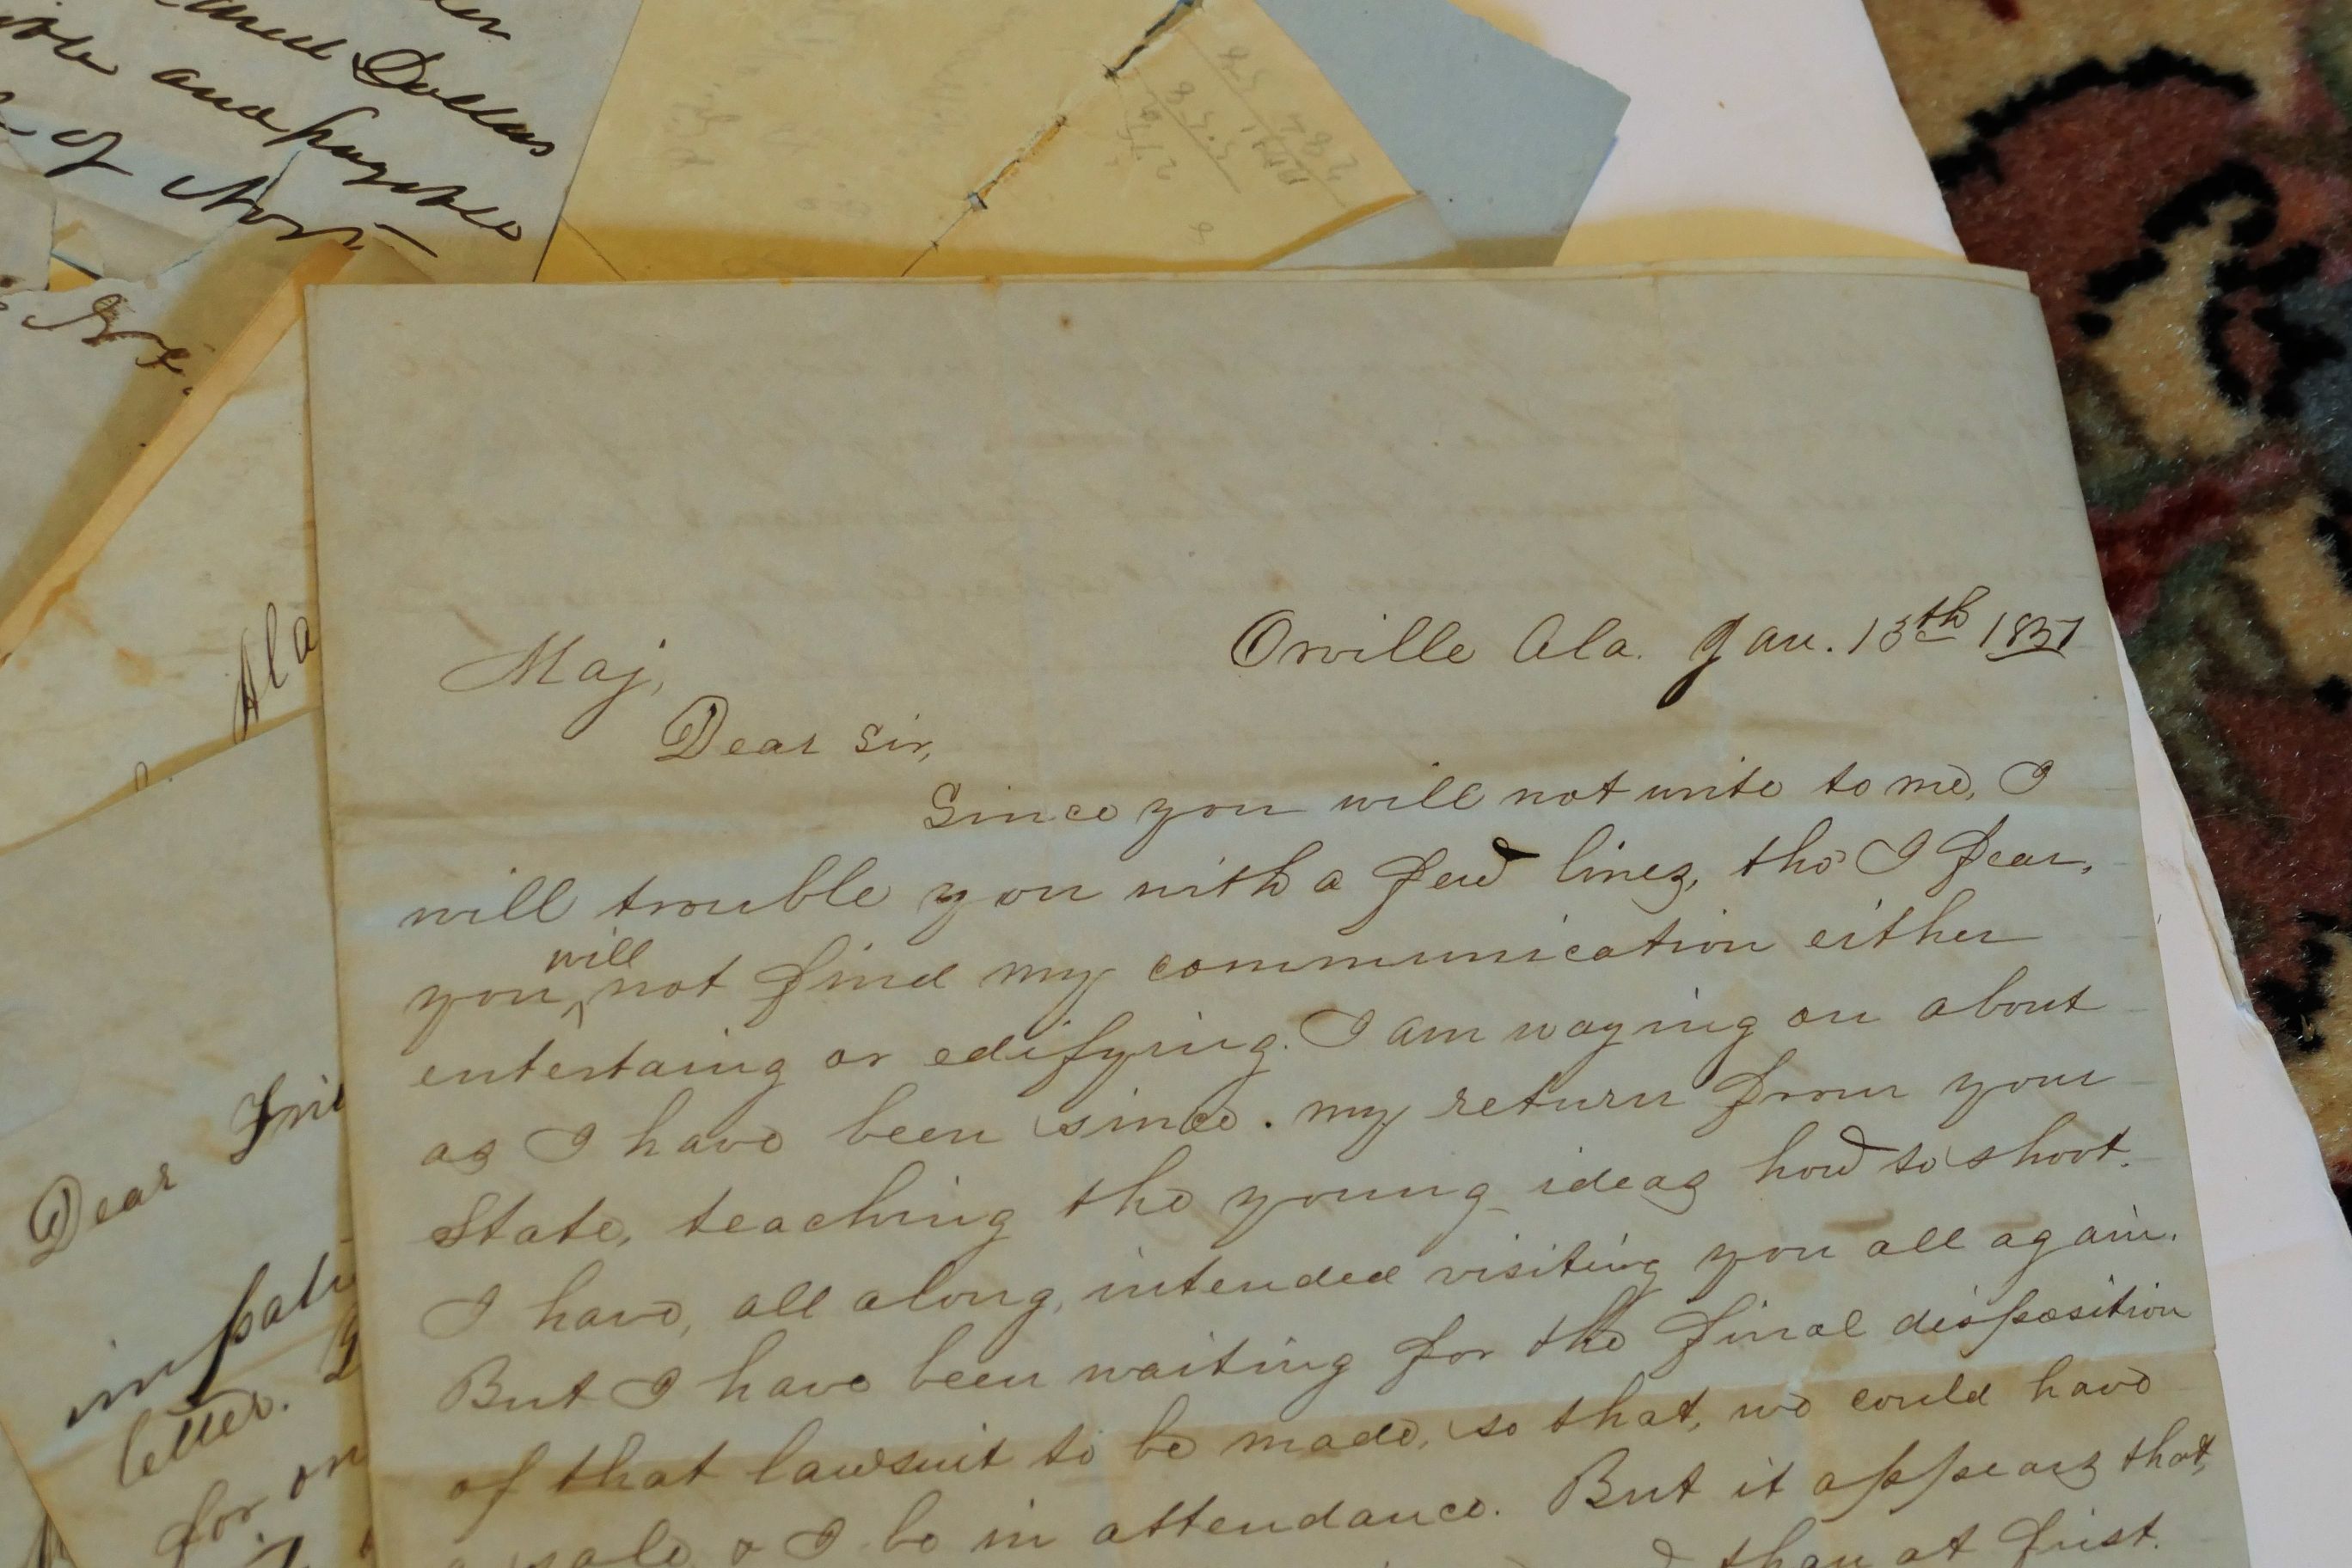 and Dollars
and payable
of
Ala
Dear
letter.
for on
Orville Ala. Jan. 13th 1857
Maj,
Dear Sir,
Since you will not write to me, I
will trouble you with a few lines, tho' I fear,
you will not find my communication either
entertaing or edifying. I am waging on about
as I have been since. my return from your
State, teaching the young ideas how to shoot.
I have, all along, intended visiting you all again.
But I have been waiting for the final disposition
of that lawsuit to be made, so that, we could have
a sale, & I be in attendance. But it appears that,
than at first.